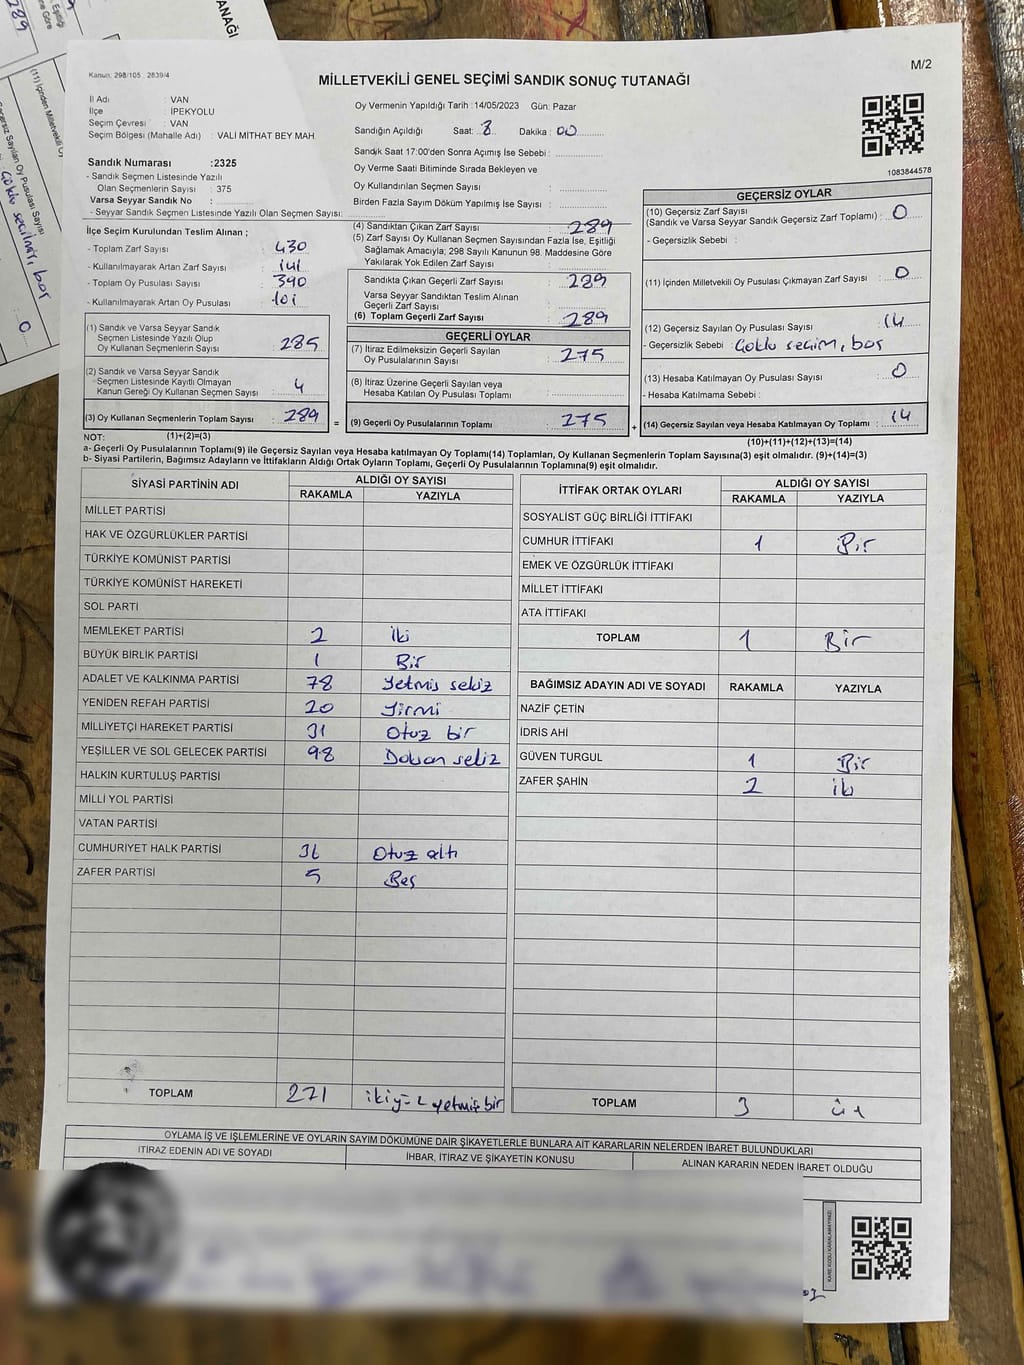 TANAĞI
289
M/2
Kanun: 298/105 2839/4
MİLLETVEKİLİ GENEL SEÇİMİ SANDIK SONUÇ TUTANAĞI
İl Adı : VAN
İlçe : İPEKYOLU
Seçim Çevresi : VAN
Seçim Bölgesi (Mahalle Adı) : VALİ MİTHAT BEY MAH.
Oy Vermenin Yapıldığı Tarih :14/05/2023 Gün: Pazar
Sandığın Açıldığı Saat: 8 Dakika : 00
Sandık Saat 17:00'den Sonra Açımış İse Sebebi :
Oy Verme Saati Bitiminde Sırada Bekleyen ve
Oy Kullandırılan Seçmen Sayısı :
Birden Fazla Sayım Döküm Yapılmış İse Sayısı :
1083844578
Sandık Numarası :2325
- Sandık Seçmen Listesinde Yazılı
Olan Seçmenlerin Sayısı : 375
Varsa Seyyar Sandık No :
- Seyyar Sandık Seçmen Listesinde Yazılı Olan Seçmen Sayısı:
İlçe Seçim Kurulundan Teslim Alınan ;
- Toplam Zarf Sayısı : 430
- Kullanılmayarak Artan Zarf Sayısı : 141
- Toplam Oy Pusulası Sayısı : 390
- Kullanılmayarak Artan Oy Pusulası : 101
(1) Sandık ve Varsa Seyyar Sandık
Seçmen Listesinde Yazılı Olup
Oy Kullanan Seçmenlerin Sayısı : 285
(2) Sandık ve Varsa Seyyar Sandık
Seçmen Listesinde Kayıtlı Olmayan
Kanun Gereği Oy Kullanan Seçmen Sayısı : 4
(3) Oy Kullanan Seçmenlerin Toplam Sayısı : 289
(1)+(2)=(3)
(4) Sandıktan Çıkan Zarf Sayısı : 289
(5) Zarf Sayısı Oy Kullanan Seçmen Sayısından Fazla İse, Eşitliği
Sağlamak Amacıyla; 298 Sayılı Kanunun 98. Maddesine Göre
Yakılarak Yok Edilen Zarf Sayısı :
Sandıkta Çıkan Geçerli Zarf Sayısı : 289
Varsa Seyyar Sandıktan Teslim Alınan
Geçerli Zarf Sayısı :
(6) Toplam Geçerli Zarf Sayısı : 289
GEÇERLİ OYLAR
(7) İtiraz Edilmeksizin Geçerli Sayılan
Oy Pusulalarının Sayısı : 275
(8) İtiraz Üzerine Geçerli Sayılan veya
Hesaba Katılan Oy Pusulası Toplamı :
= (9) Geçerli Oy Pusulalarının Toplamı : 275
GEÇERSİZ OYLAR
(10) Geçersiz Zarf Sayısı
(Sandık ve Varsa Seyyar Sandık Geçersiz Zarf Toplamı) : 0
- Geçersizlik Sebebi :
(11) İçinden Milletvekili Oy Pusulası Çıkmayan Zarf Sayısı : 0
(12) Geçersiz Sayılan Oy Pusulası Sayısı : 14
- Geçersizlik Sebebi : Çoklu seçim, boş
(13) Hesaba Katılmayan Oy Pusulası Sayısı : 0
- Hesaba Katılmama Sebebi :
+ (14) Geçersiz Sayılan veya Hesaba Katılmayan Oy Toplamı : 14
(10)+(11)+(12)+(13)=(14)
NOT:
a- Geçerli Oy Pusulalarının Toplamı(9) ile Geçersiz Sayılan veya Hesaba katılmayan Oy Toplamı(14) Toplamları, Oy Kullanan Seçmenlerin Toplam Sayısına(3) eşit olmalıdır. (9)+(14)=(3)
b- Siyasi Partilerin, Bağımsız Adayların ve İttifakların Aldığı Ortak Oyların Toplamı, Geçerli Oy Pusulalarının Toplamına(9) eşit olmalıdır.
SİYASİ PARTİNİN ADI ALDIĞI OY SAYISI
RAKAMLA YAZIYLA
MİLLET PARTİSİ
HAK VE ÖZGÜRLÜKLER PARTİSİ
TÜRKİYE KOMÜNİST PARTİSİ
TÜRKİYE KOMÜNİST HAREKETİ
SOL PARTİ
MEMLEKET PARTİSİ 2 iki
BÜYÜK BİRLİK PARTİSİ 1 Bir
ADALET VE KALKINMA PARTİSİ 78 Yetmiş sekiz
YENİDEN REFAH PARTİSİ 20 Yirmi
MİLLİYETÇİ HAREKET PARTİSİ 31 Otuz bir
YEŞİLLER VE SOL GELECEK PARTİSİ 98 Doksan sekiz
HALKIN KURTULUŞ PARTİSİ
MİLLİ YOL PARTİSİ
VATAN PARTİSİ
CUMHURİYET HALK PARTİSİ 36 Otuz altı
ZAFER PARTİSİ 5 Beş
TOPLAM 271 ikiyüz yetmiş bir
İTTİFAK ORTAK OYLARI ALDIĞI OY SAYISI
RAKAMLA YAZIYLA
SOSYALİST GÜÇ BİRLİĞİ İTTİFAKI
CUMHUR İTTİFAKI 1 Bir
EMEK VE ÖZGÜRLÜK İTTİFAKI
MİLLET İTTİFAKI
ATA İTTİFAKI
TOPLAM 1 Bir
BAĞIMSIZ ADAYIN ADI VE SOYADI RAKAMLA YAZIYLA
NAZİF ÇETİN
İDRİS AHİ
GÜVEN TURGUL 1 Bir
ZAFER ŞAHİN 2 iki
TOPLAM 3 üç
OYLAMA İŞ VE İŞLEMLERİNE VE OYLARIN SAYIM DÖKÜMÜNE DAİR ŞİKAYETLERLE BUNLARA AİT KARARLARIN NELERDEN İBARET BULUNDUKLARI
İTİRAZ EDENİN ADI VE SOYADI İHBAR, İTİRAZ VE ŞİKAYETİN KONUSU ALINAN KARARIN NEDEN İBARET OLDUĞU
KARE KODU KARALAMAYINIZ!